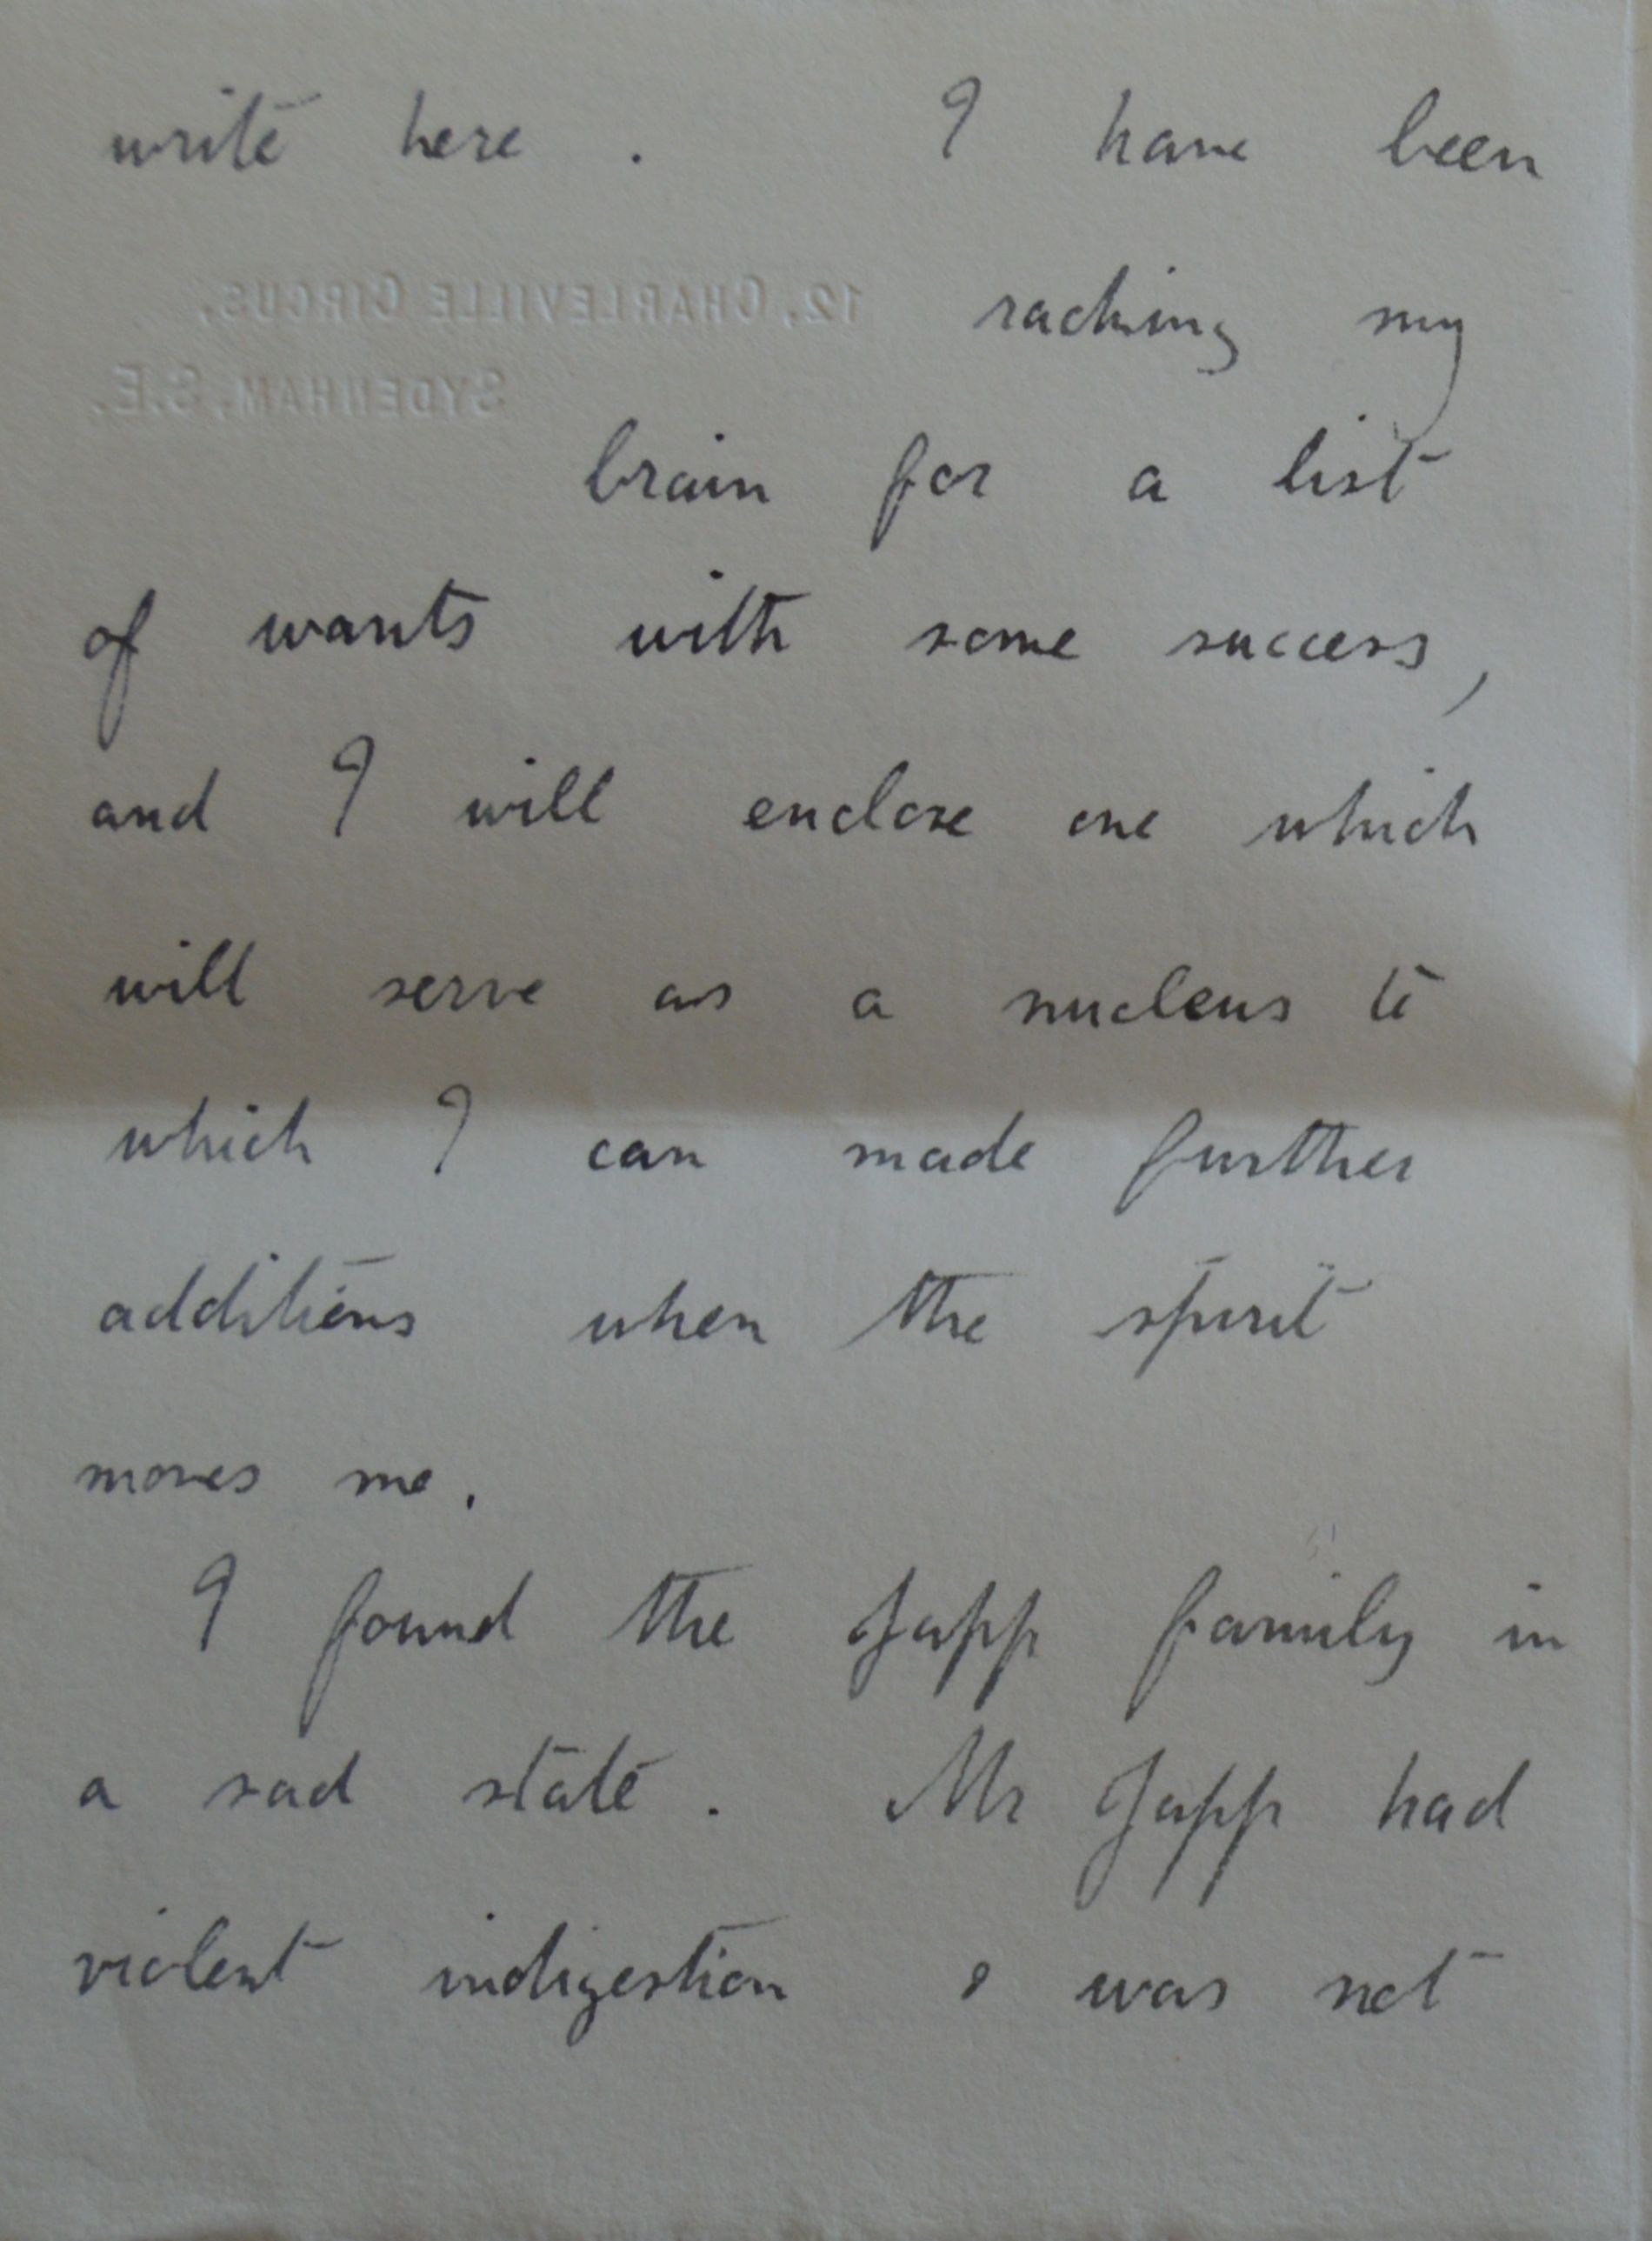 write here. I have been
12, CHARLEVILLE CIRCUS,
SYDENHAM, S.E.
racking my
brain for a list
of wants with some success,
and I will enclose one which
will serve as a nucleus to
which I can made further
additions when the spirit
moves me.
I found the Japp family in
a sad state. Mr Japp had
violent indigestion & was not